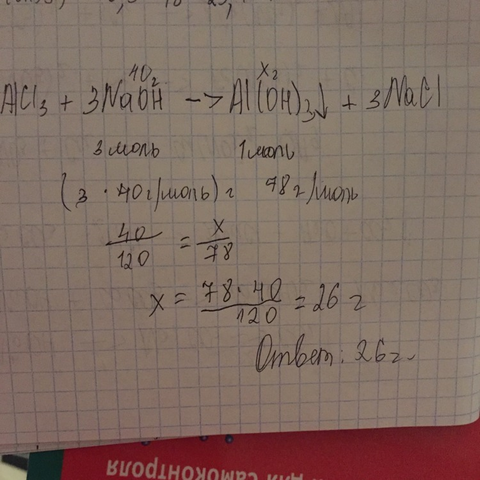 40г          xг
AlCl₃ + 3NaOH -> Al(OH)₃↓ + 3NaCl
3 моль          1 моль
(3 · 40 г/моль) г          78 г/моль
40/120 = x/78
x = 78·40/120 = 26 г
Ответ: 26 г.
для самоконтроля